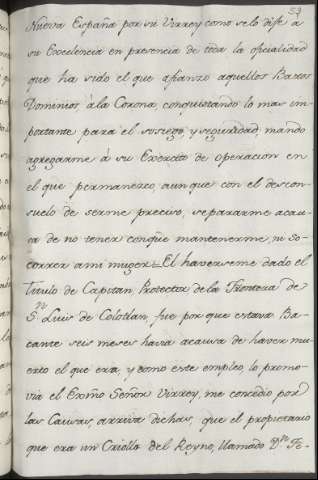 53
Nueva España por su Virrey como selo dise à
su Excelencia en presencia de toda la oficialidad
que ha sido el que afianzo aquellos Bastos
Dominios á la Corona, conquistando lo mas im-
portante para el sosiego, y seguridad, mandó
agregarme á su Exercito de operacion en
el que permanezco, aunque con el descon-
suelo de serme preciso, separarme acau-
sa de no tener conque mantenerme, ni So-
correr ami muger = El haverseme dado el
Titulo de Capitan, Protector de la Frontera de
S.n Luis de Colotlan, fue por que estava Ba-
cante seis meses havia acausa de haver mu-
erto el que era, y como este empleo, lo promo-
via el Exmo Señor Virrey, me concedio por
las Causas, arriva dichas, que el propietario
que era un Criollo del Reyno, llamado D.n Fe-